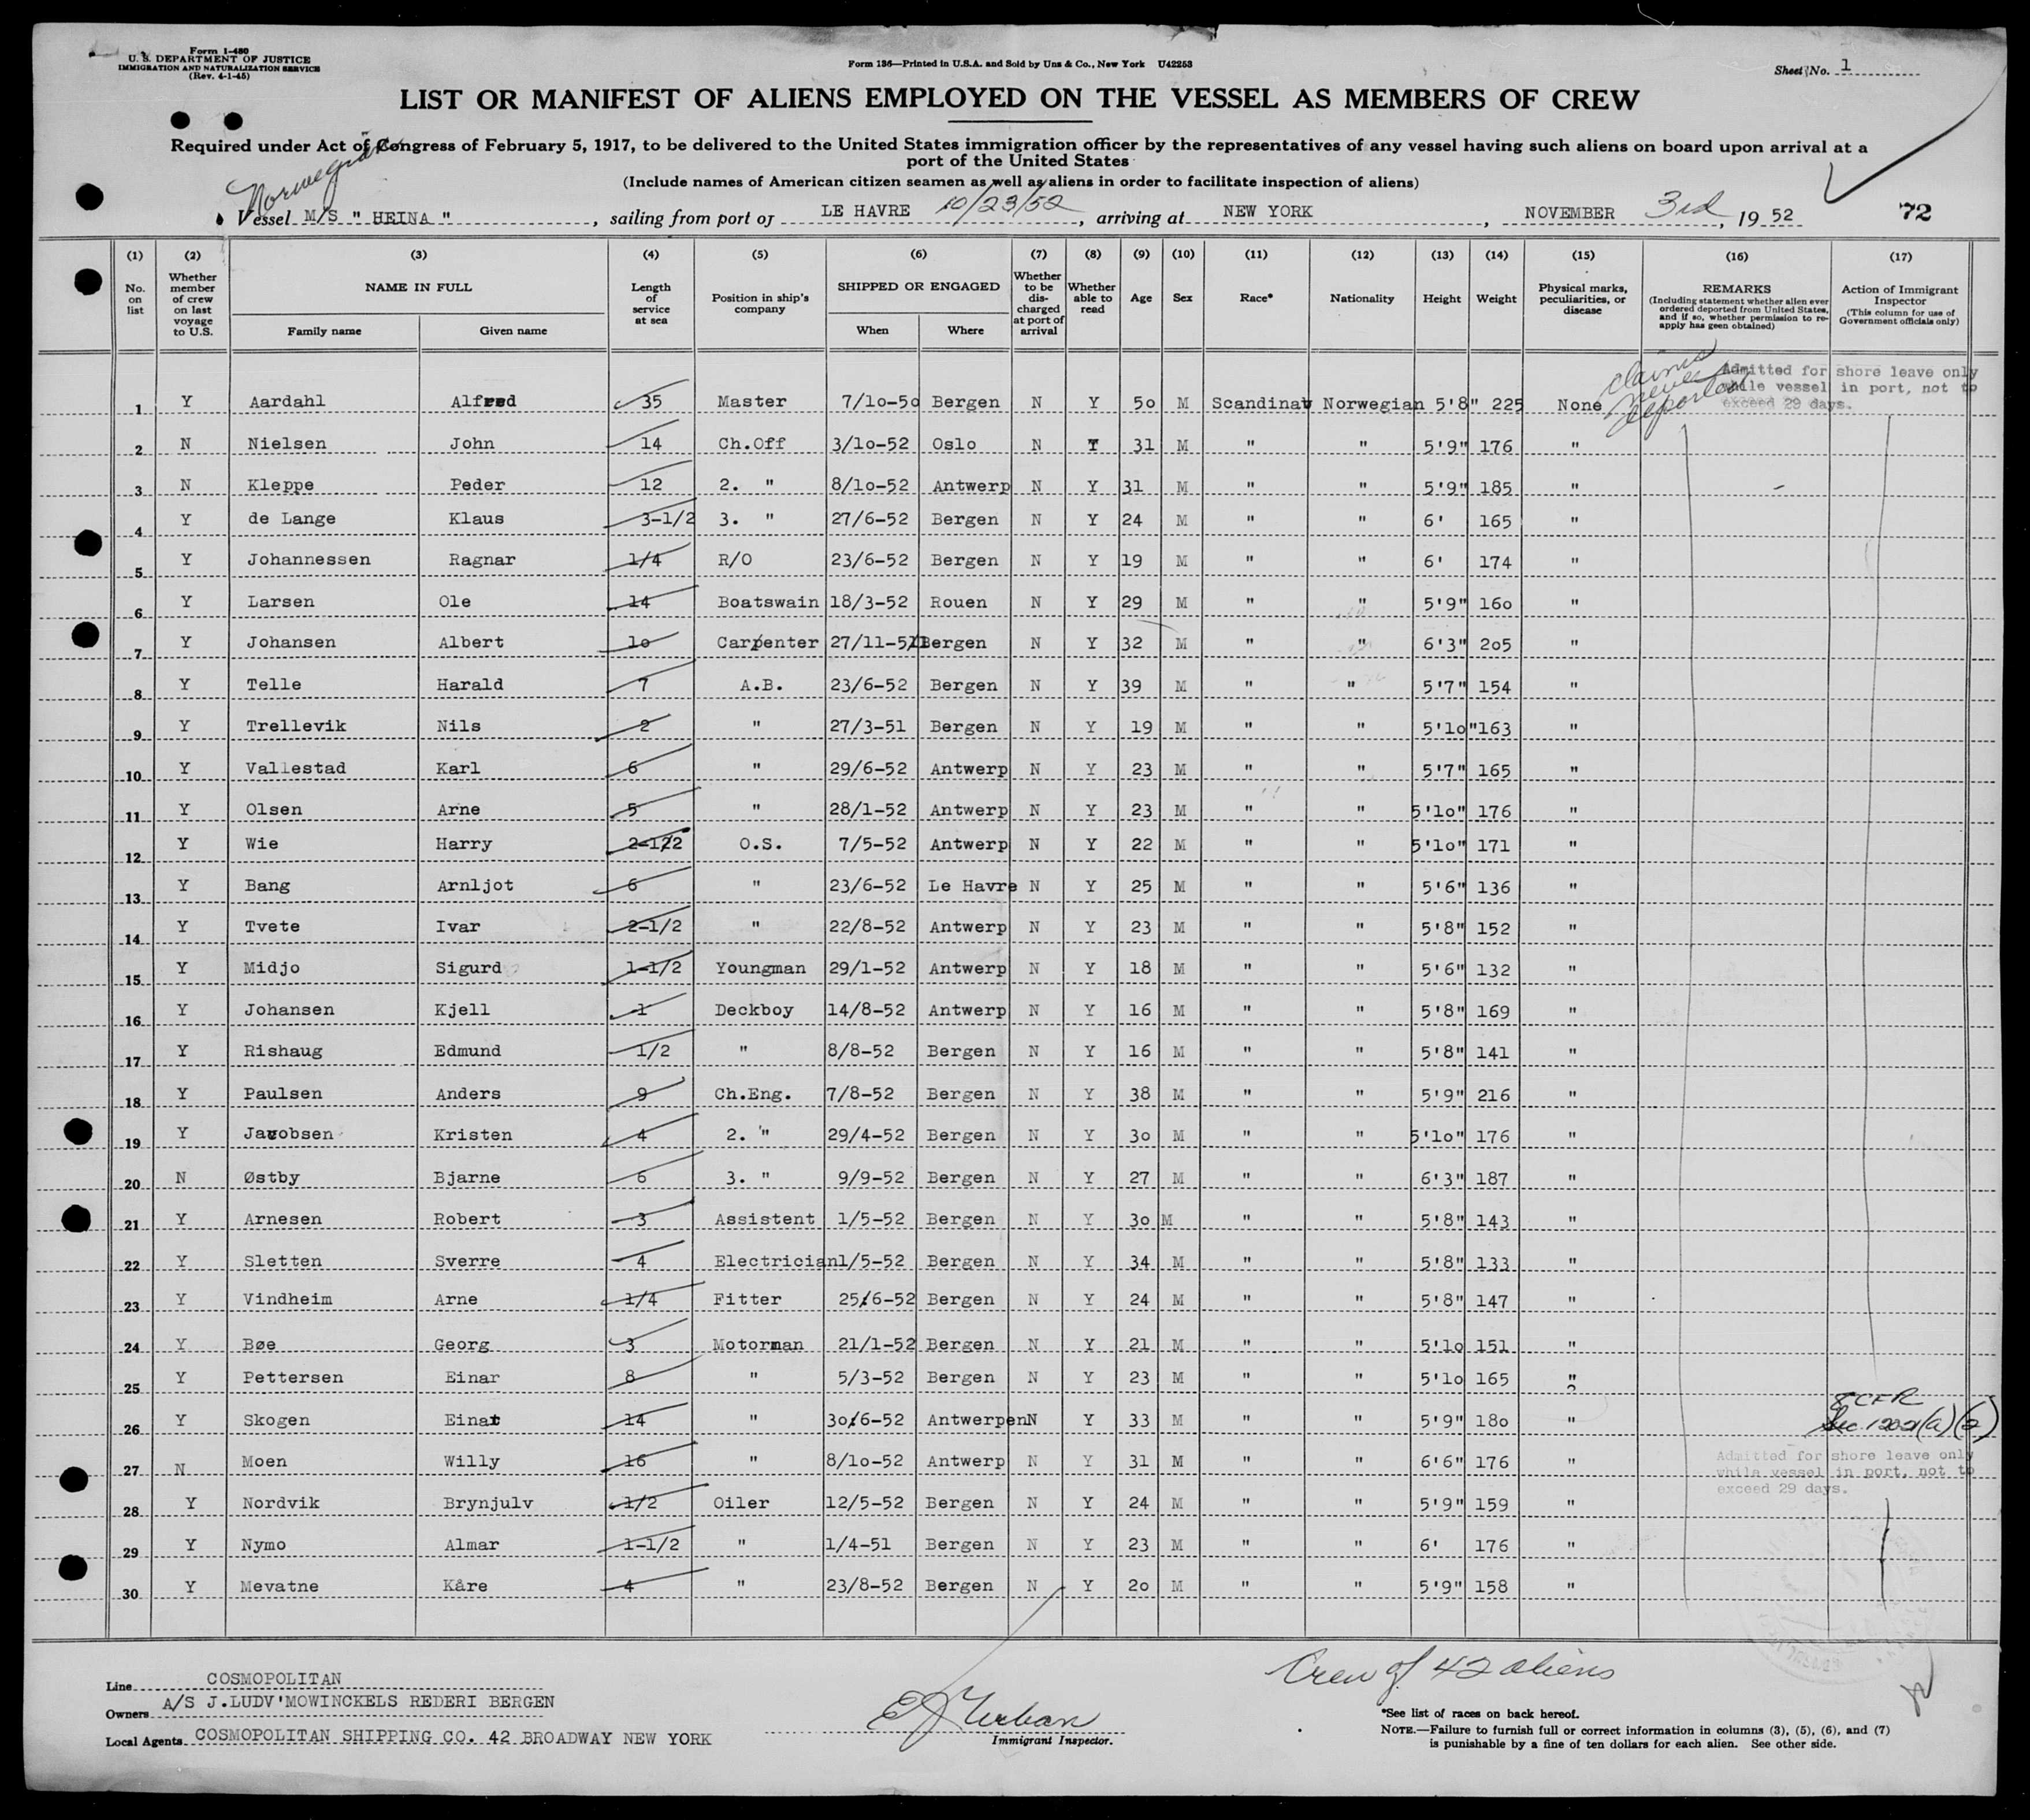 Form I-480
U. S. DEPARTMENT OF JUSTICE
IMMIGRATION AND NATURALIZATION SERVICE
(Rev. 4-1-45)
Form 136—Printed in U.S.A. and Sold by Unz & Co., New York U42253
Sheet No. 1
LIST OR MANIFEST OF ALIENS EMPLOYED ON THE VESSEL AS MEMBERS OF CREW
Required under Act of Congress of February 5, 1917, to be delivered to the United States immigration officer by the representatives of any vessel having such aliens on board upon arrival at a
port of the United States
(Include names of American citizen seamen as well as aliens in order to facilitate inspection of aliens)
Norwegian
Vessel M/S " HEINA ", sailing from port of LE HAVRE 10/23/52, arriving at NEW YORK, NOVEMBER 3rd, 19 52 72
(1) (2) (3) (4) (5) (6) (7) (8) (9) (10) (11) (12) (13) (14) (15) (16) (17)
No. on list
Whether member of crew on last voyage to U.S.
NAME IN FULL
Family name Given name
Length of service at sea
Position in ship's company
SHIPPED OR ENGAGED
When Where
Whether to be discharged at port of arrival
Whether able to read
Age
Sex
Race*
Nationality
Height
Weight
Physical marks, peculiarities, or disease
REMARKS
(Including statement whether alien ever ordered deported from United States, and if so, whether permission to re-apply has geen obtained)
Action of Immigrant Inspector
(This column for use of Government officials only)
claims never deported
Admitted for shore leave only
while vessel in port, not to
exceed 29 days.
1 Y Aardahl Alfred 35 Master 7/10-50 Bergen N Y 50 M Scandinav Norwegian 5'8" 225 None
2 N Nielsen John 14 Ch.Off 3/10-52 Oslo N Y 31 M " " 5'9" 176 "
3 N Kleppe Peder 12 2. " 8/10-52 Antwerp N Y 31 M " " 5'9" 185 " -
4 Y de Lange Klaus 3-1/2 3. " 27/6-52 Bergen N Y 24 M " " 6' 165 "
5 Y Johannessen Ragnar 1/4 R/O 23/6-52 Bergen N Y 19 M " " 6' 174 "
6 Y Larsen Ole 14 Boatswain 18/3-52 Rouen N Y 29 M " " 5'9" 160 "
7 Y Johansen Albert 10 Carpenter 27/11-51 Bergen N Y 32 M " " 6'3" 205 "
8 Y Telle Harald 7 A.B. 23/6-52 Bergen N Y 39 M " " 5'7" 154 "
9 Y Trellevik Nils 2 " 27/3-51 Bergen N Y 19 M " " 5'10" 163 "
10 Y Vallestad Karl 6 " 29/6-52 Antwerp N Y 23 M " " 5'7" 165 "
11 Y Olsen Arne 5 " 28/1-52 Antwerp N Y 23 M " " 5'10" 176 "
12 Y Wie Harry 2-1/2 O.S. 7/5-52 Antwerp N Y 22 M " " 5'10" 171 "
13 Y Bang Arnljot 6 " 23/6-52 Le Havre N Y 25 M " " 5'6" 136 "
14 Y Tvete Ivar 2-1/2 " 22/8-52 Antwerp N Y 23 M " " 5'8" 152 "
15 Y Midjo Sigurd 1-1/2 Youngman 29/1-52 Antwerp N Y 18 M " " 5'6" 132 "
16 Y Johansen Kjell 1 Deckboy 14/8-52 Antwerp N Y 16 M " " 5'8" 169 "
17 Y Rishaug Edmund 1/2 " 8/8-52 Bergen N Y 16 M " " 5'8" 141 "
18 Y Paulsen Anders 9 Ch.Eng. 7/8-52 Bergen N Y 38 M " " 5'9" 216 "
19 Y Jacobsen Kristen 4 2. " 29/4-52 Bergen N Y 30 M " " 5'10" 176 "
20 N Østby Bjarne 6 3. " 9/9-52 Bergen N Y 27 M " " 6'3" 187 "
21 Y Arnesen Robert 3 Assistent 1/5-52 Bergen N Y 30 M " " 5'8" 143 "
22 Y Sletten Sverre 4 Electrician 1/5-52 Bergen N Y 34 M " " 5'8" 133 "
23 Y Vindheim Arne 1/4 Fitter 25/6-52 Bergen N Y 24 M " " 5'8" 147 "
24 Y Bøe Georg 3 Motorman 21/1-52 Bergen N Y 21 M " " 5'10 151 "
25 Y Pettersen Einar 8 " 5/3-52 Bergen N Y 23 M " " 5'10 165 "
26 Y Skogen Einar 14 " 30/6-52 Antwerpen N Y 33 M " " 5'9" 180 "
8 CFR
Sec. 120.21(a)(2)
27 N Moen Willy 16 " 8/10-52 Antwerp N Y 31 M " " 6'6" 176 "
Admitted for shore leave only
while vessel in port, not to
exceed 29 days.
28 Y Nordvik Brynjulv 1/2 Oiler 12/5-52 Bergen N Y 24 M " " 5'9" 159 "
29 Y Nymo Almar 1-1/2 " 1/4-51 Bergen N Y 23 M " " 6' 176 "
30 Y Mevatne Kåre 4 " 23/8-52 Bergen N Y 20 M " " 5'9" 158 "
Line COSMOPOLITAN
Owners A/S J.LUDV'MOWINCKELS REDERI BERGEN
Local Agents COSMOPOLITAN SHIPPING CO. 42 BROADWAY NEW YORK
Immigrant Inspector.
Crew of 42 aliens
*See list of races on back hereof.
NOTE.—Failure to furnish full or correct information in columns (3), (5), (6), and (7)
is punishable by a fine of ten dollars for each alien. See other side.